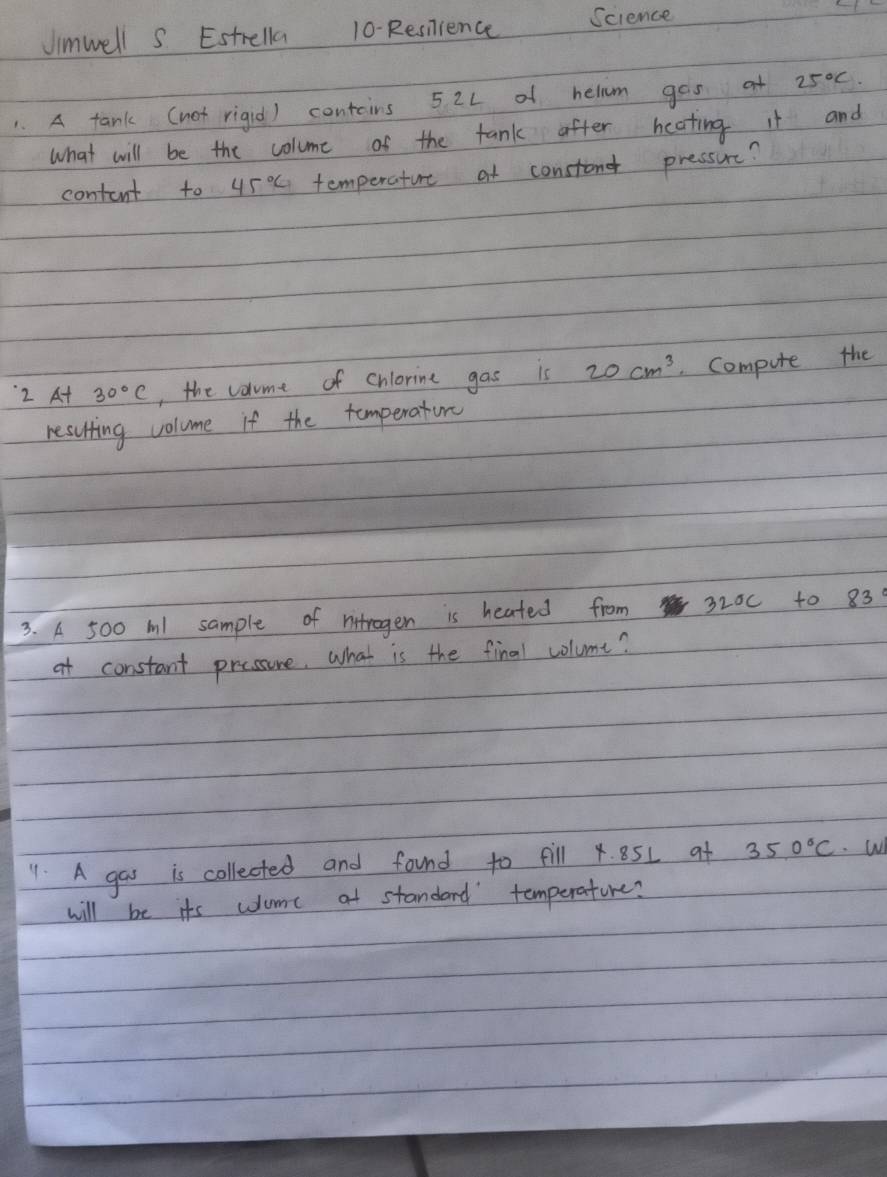 Jimwell S. Estrella 10-Resilience Science
1. A tank (not rigid) contains 5.2L of helium gas at 25°C.
What will be the volume of the tank after heating it and
content to 45°C temperature at constant pressure?
2 At 30°C, the volume of Chlorine gas is 20 cm³. Compute the
resulting volume if the temperature
3. A 500 ml sample of nitrogen is heated from 320C to 83°
at constant pressure. What is the final volume?
4. A gas is collected and found to fill .85L at 35.0°C.
will be its volume at standard temperature?